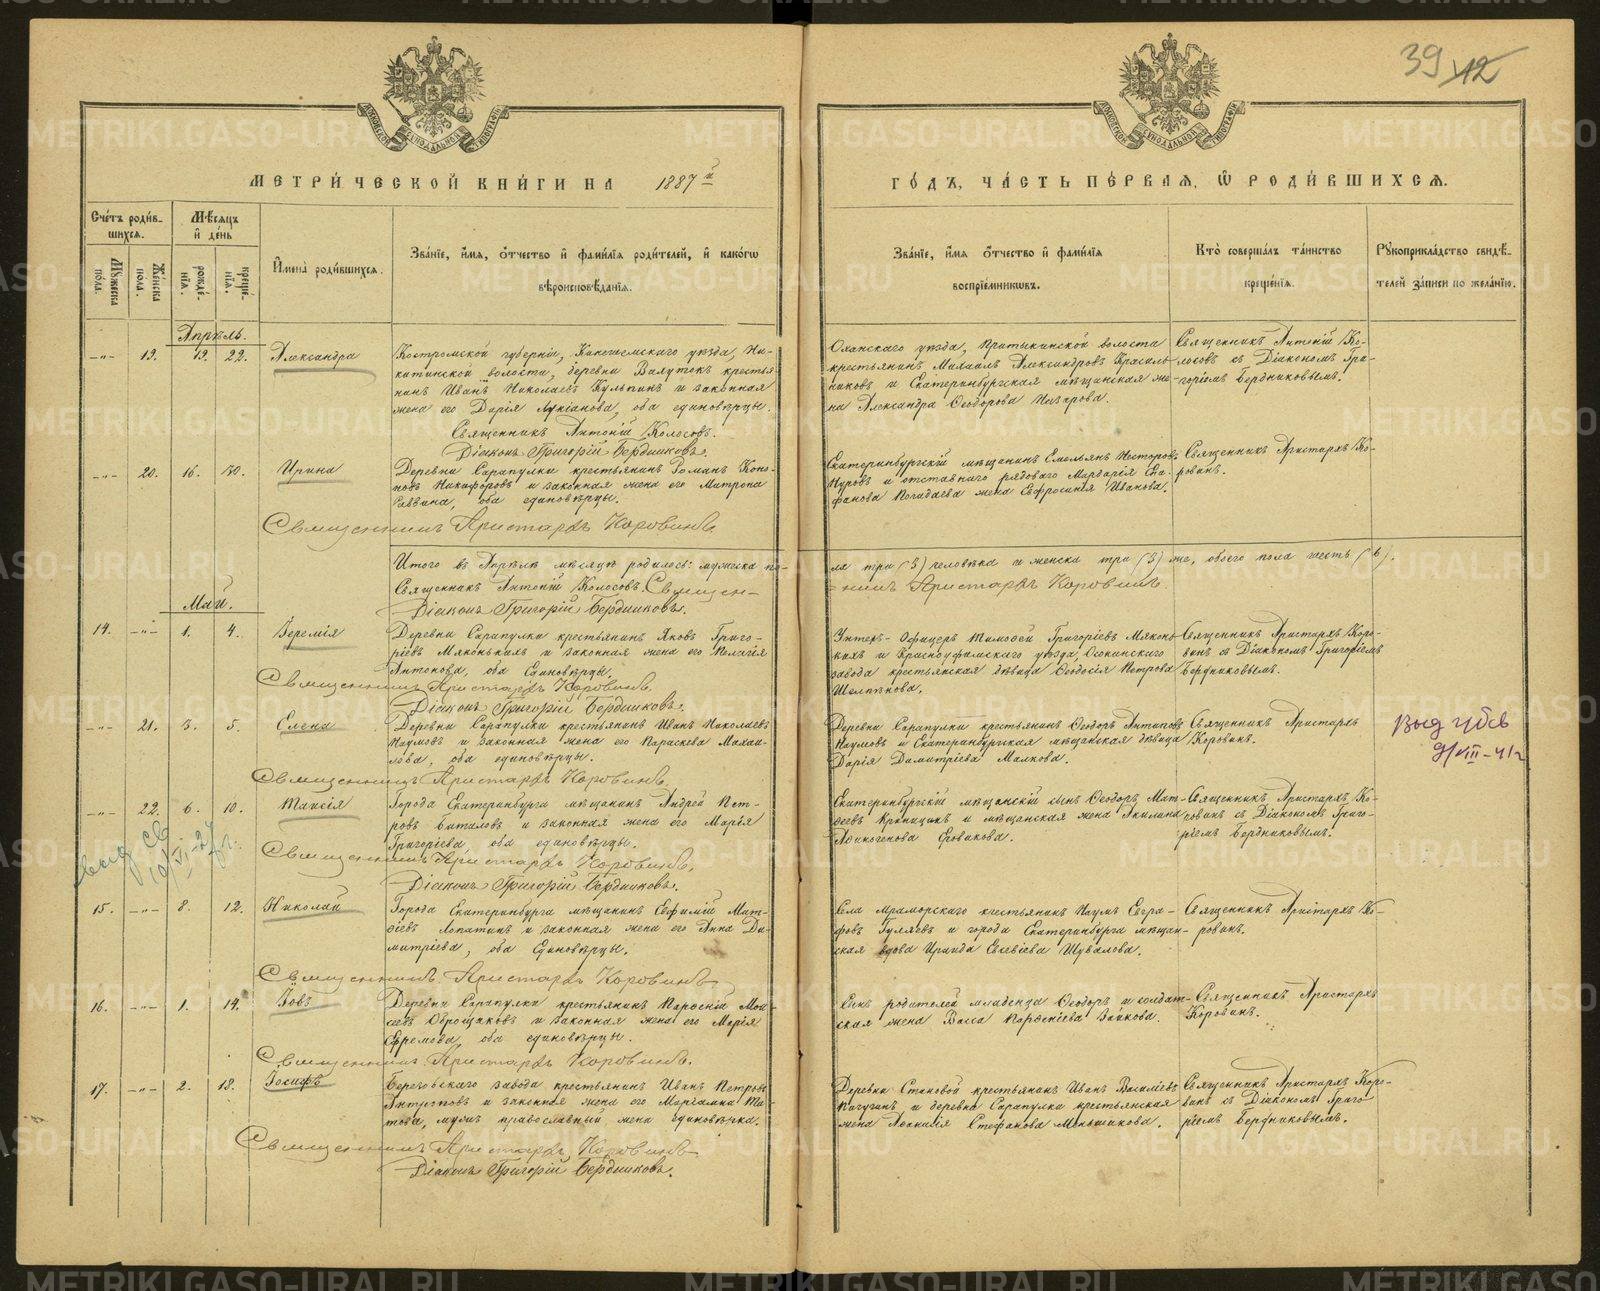 39 12
МЕТРИЧЕСКОЙ КНИГИ НА 1887 й
ГОДЪ, ЧАСТЬ ПЕРВАЯ, Ѡ РОДИВШИХСЯ.
Счетъ родив-
шихся.
Мужеска пола.
Женска пола.
Мѣсяцъ
и день
рожде-
нія.
креще-
нія.
Имена родившихся.
Званіе, имя, отчество и фамилія родителей, и какогѡ
вѣроисповѣданія.
Званіе, имя отчество и фамилія
воспріемникѡвъ.
Кто совершалъ таинство
крещенія.
Рукоприкладство свидѣ-
телей записи по желанію.
Апрѣль.
-„- 19. 19. 22. Александра
Костромской губерніи, Кинешемскаго уѣзда, Ни-
китинской волости, деревни Валутокъ крестья-
нинъ Иванъ Николаевъ Кульпинъ и законная
жена его Дарія Лукіанова, оба единовѣрцы.
Священникъ Антоній Колосовъ.
Діаконъ Григорій Бердниковъ.
Оханскаго уѣзда, Притыкинской волости
крестьянинъ Михаилъ Александровъ Красиль-
никовъ и Екатеринбургская мѣщанская же-
на Александра Ѳеодорова Назарова.
Священникъ Антоній Ко-
лосовъ съ Діакономъ Гри-
горіемъ Бердниковымъ.
-„- 20. 16. 30. Ирина
Деревни Сарапулки крестьянинъ Романъ Коно-
новъ Никифоровъ и законная жена его Матрона
Саввина, оба единовѣрцы.
Священникъ Аристархъ Коровинъ
Екатеринбургскій мѣщанинъ Емельянъ Несторовъ
Нуровъ и отставнаго рядоваго Мардарія Епи-
фанова Погадаева жена Евфросинія Иванова.
Священникъ Аристархъ Ко-
ровинъ.
Итого въ Апрѣлѣ мѣсяцѣ родилось: мужеска по-
ла три (3) человѣка и женска три (3) же, обоего пола шесть (6).
Священникъ Антоній Колосовъ. Священ-
никъ Аристархъ Коровинъ
Діаконъ Григорій Бердниковъ.
Май.
14. -„- 1. 4. Іеремія
Деревни Сарапулка крестьянинъ Яковъ Григо-
ріевъ Мяконькихъ и законная жена его Пелагія
Антонова, оба Единовѣрцы.
Священникъ Аристархъ Коровинъ.
Діаконъ Григорій Бердниковъ.
Унтеръ-Офицеръ Тимоѳей Григоріевъ Мяконь-
кихъ и Красноуфимскаго уѣзда,
завода крестьянская дѣвица Ѳеодосія Петрова
Священникъ Аристархъ Коро-
винъ съ Діакономъ Григоріемъ
Бердниковымъ.
-„- 21. 3. 5. Елена
Деревни Сарапулки крестьянинъ Иванъ Николаевъ
Наумовъ и законная жена его Параскева Михаи-
лова, оба единовѣрцы.
Священникъ Аристархъ Коровинъ.
Деревни Сарапулки крестьянинъ Ѳеодоръ Антиповъ
Наумовъ и Екатеринбургская мѣщанская дѣвица
Дарія Димитріева Малкова.
Священникъ Аристархъ
Коровинъ.
Выд
9/VIII-41г
-„- 22. 6. 10. Таисія
Города Екатеринбурга мѣщанинъ Андрей Пет-
ровъ Баталовъ и законная жена его Марія
Григоріева, оба единовѣрцы.
Священникъ Аристархъ Коровинъ.
Діаконъ Григорій Бердниковъ.
Екатеринбургскій мѣщанскій сынъ Ѳеодоръ Мат-
ѳеевъ Криницинъ и мѣщанская жена Акилина
Аѳиногенова Еровикова.
Священникъ Аристархъ Ко-
ровинъ съ Діакономъ Григо-
ріемъ Бердниковымъ.
15. -„- 8. 12. Николай
Города Екатеринбурга мѣщанинъ Евфимій Мат-
ѳіевъ Лопатинъ и законная жена его Анна Ди-
митріева, оба Единовѣрцы.
Священникъ Аристархъ Коровинъ
Села Мраморскаго крестьянинъ Наумъ Евгра-
фовъ Гуляевъ и города Екатеринбурга мѣщан-
ская вдова Ираида Евсевіева Шувалова.
Священникъ Аристархъ Ко-
ровинъ.
16. -„- 1. 14. Іовъ
Деревни Сарапулка крестьянинъ Парѳеній Мои-
сеевъ Оброщаковъ и законная жена его Марія
Ефремова, оба единовѣрцы.
Священникъ Аристархъ Коровинъ.
Сынъ родителей младенца Ѳеодоръ и солдат-
ская жена Васса Парѳеніева Зайкова.
Священникъ Аристархъ
Коровинъ.
17. -„- 2. 18. Іосифъ
Березовскаго завода крестьянинъ Иванъ Петровъ
Антроповъ и законная жена его Маріамна Ти-
това, мужъ православный жена единовѣрка.
Священникъ Аристархъ Коровинъ
Діаконъ Григорій Бердниковъ.
Деревни Становой крестьянинъ Иванъ Василіевъ
Пичугинъ и деревни Сарапулка крестьянская
жена Стефанова Меньшикова.
Священникъ Аристархъ Коро-
винъ съ Діакономъ Григо-
ріемъ Бердниковымъ.
METRIKI.GASO-URAL.RU